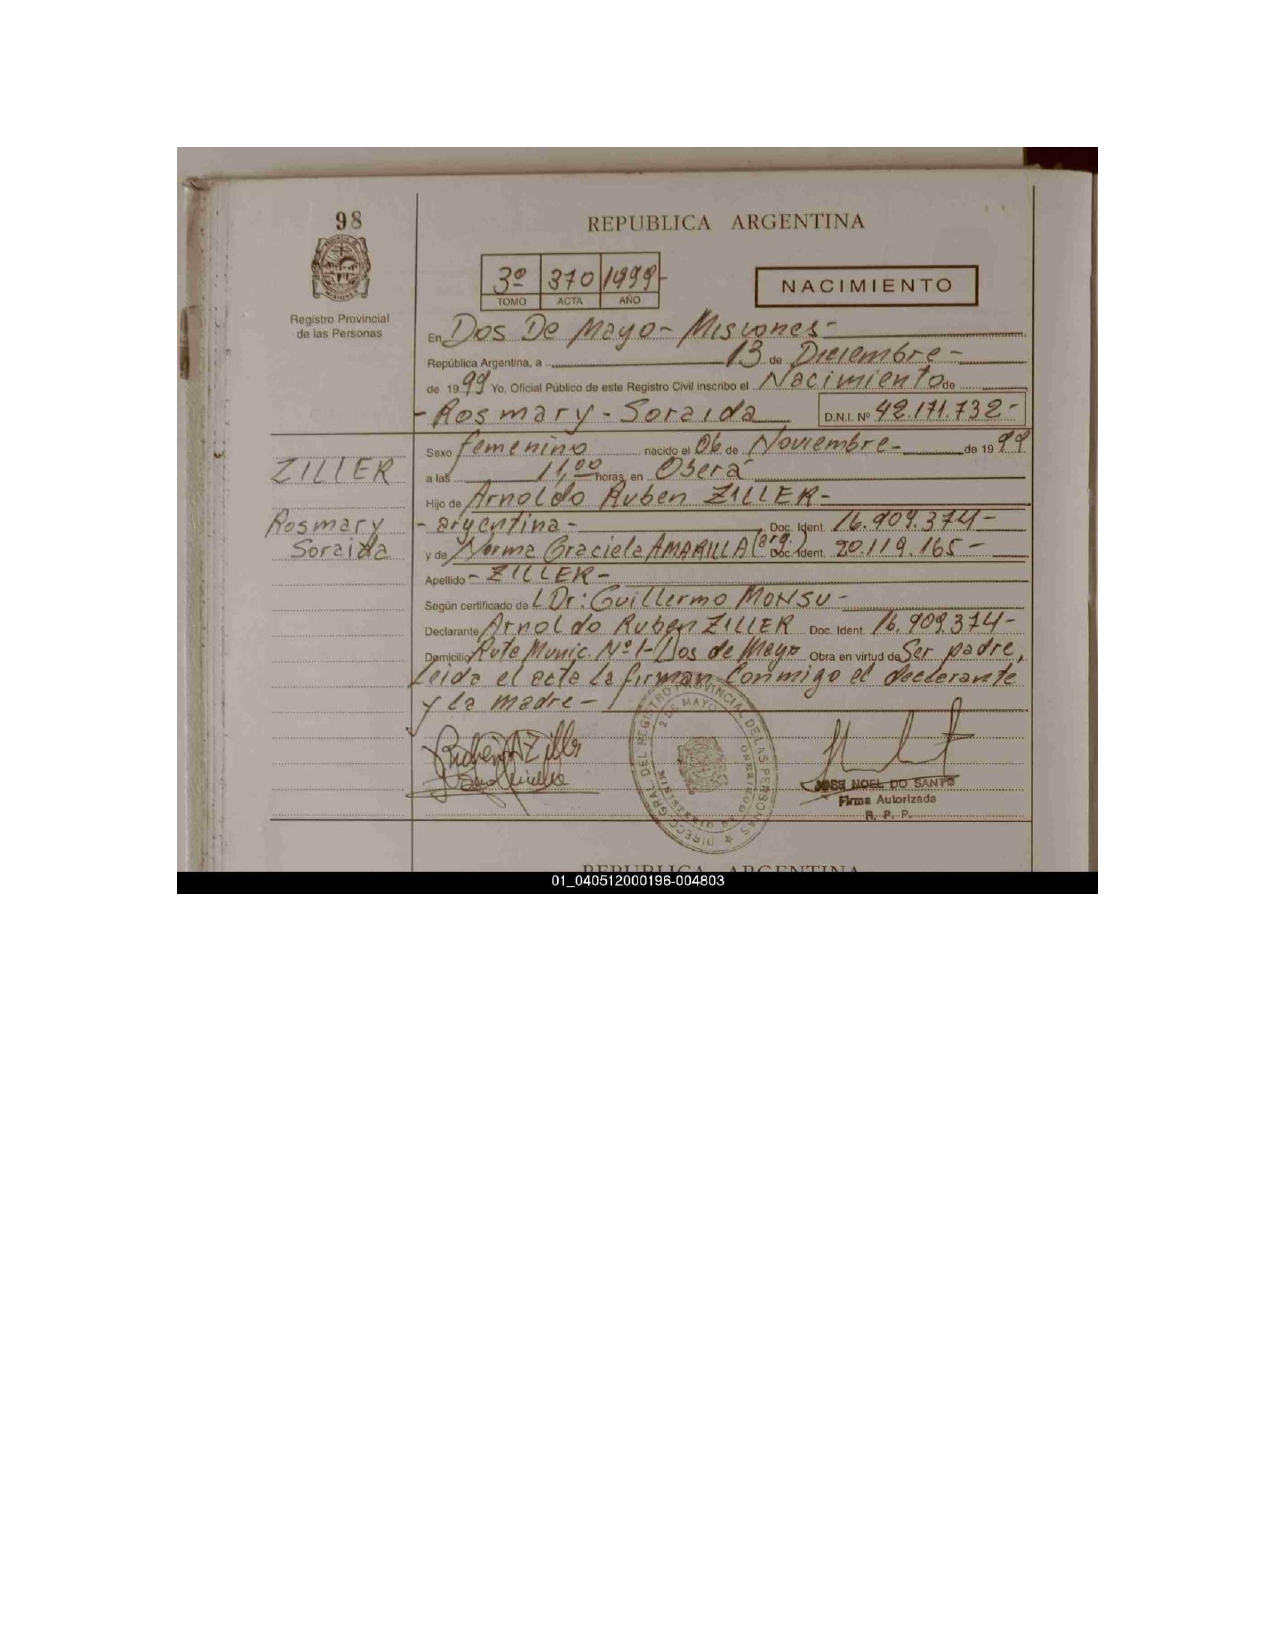 98
REPUBLICA ARGENTINA
3º 370 1999-
TOMO ACTA AÑO
NACIMIENTO
Registro Provincial
de las Personas
En Dos De Mayo - Misiones -
República Argentina, a 13 de Diciembre -
de 1999 Yo, Oficial Público de este Registro Civil inscribo el Nacimiento de
- Rosmary - Soraida D.N.I. Nº 42.171.732 -
Sexo femenino nacido el 06 de Noviembre - de 1999
ZILLER
a las 11,00 horas, en Oberá
Hijo de Arnoldo Ruben ZILLER -
Rosmary
- argentina - Doc. Ident. 16.909.374 -
Soraida
y de Norma Graciela AMARILLA (arg.) Doc. Ident. 20.119.165 -
Apellido - ZILLER -
Según certificado de L Dr: Guillermo MONSU -
Declarante Arnoldo Ruben ZILLER Doc. Ident. 16.909.374 -
Domicilio Rute Munic. Nº 1 - Dos de Mayo Obra en virtud de Ser padre,
Leida el acta la firman conmigo el declarante
y la madre -
DIRECC. GRAL. DEL REGISTRO PROVINCIAL DE LAS PERSONAS
2 DE MAYO
MINISTERIO DE GOBIERNO
JOSE NOEL DO SANTO
Firma Autorizada
R. P. P.
REPUBLICA ARGENTINA
01_040512000196-004803